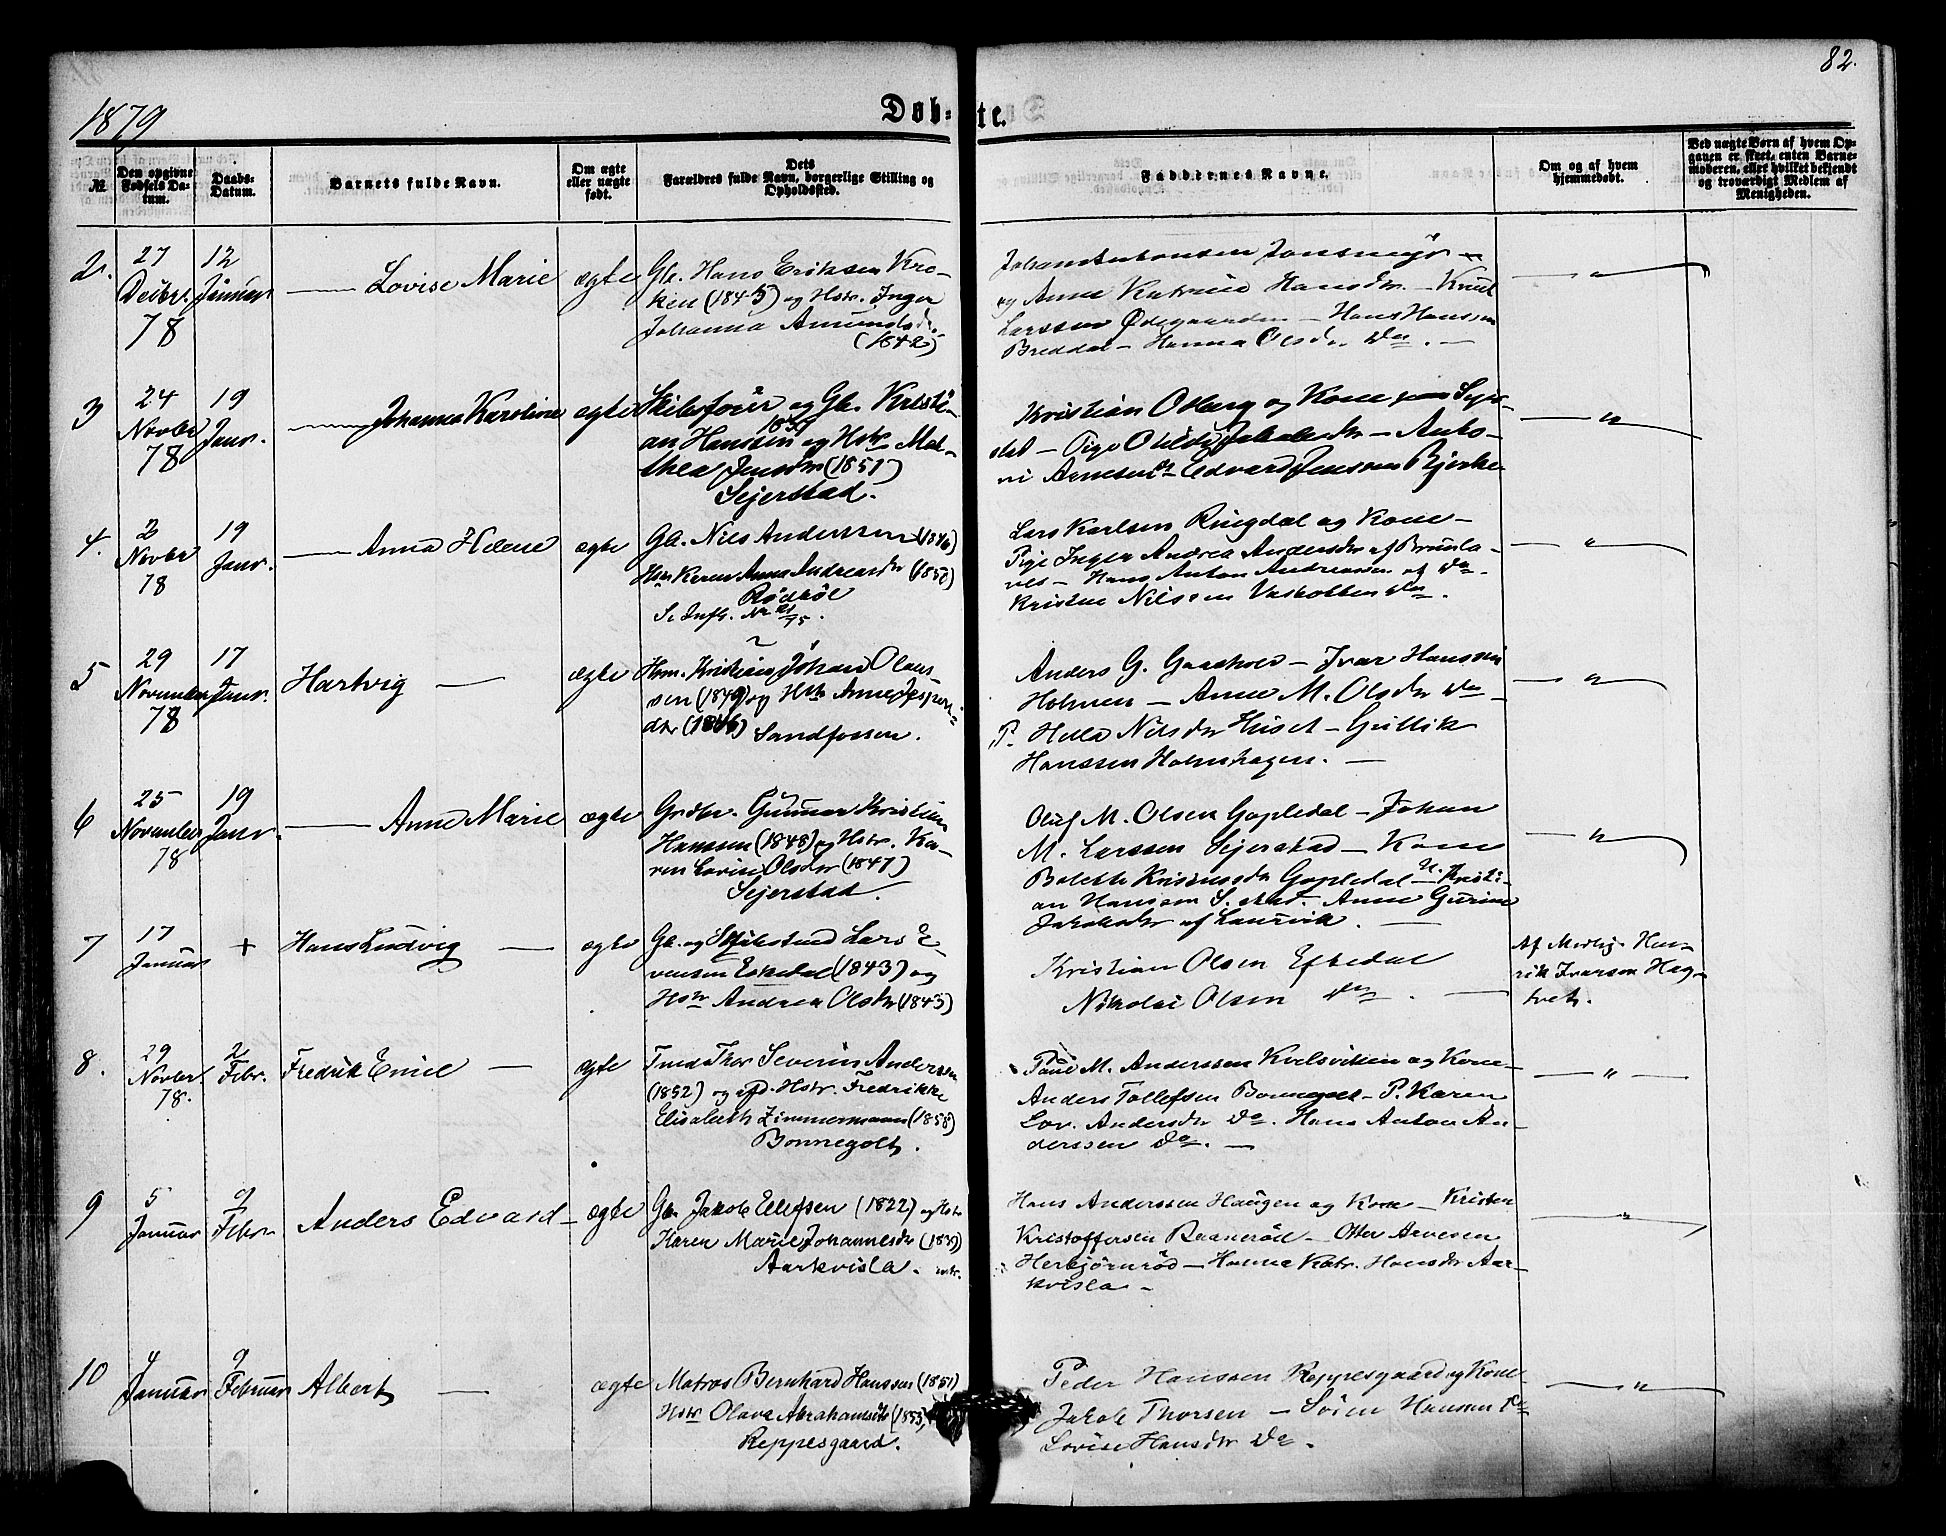 82.
1879
Døb=te.
№
Den opgivne Fødsels Datum.
Daabs-Datum.
Barnets fulde Navn.
Om ægte eller uægte født.
Dets Forældres fulde Navn, borgerlige Stilling og Opholdssted.
Faddernes Navne.
Om og af hvem hjemmedøbt.
Ved uægte Børn af hvem Opgaven er skeet, enten Barnemoderen, eller hvilket bekjendt og troværdigt Medlem af Menigheden.
2.
27 Decbr. 78
12 Januar
Lovise Marie
ægte
Gbr. Hans Eriksen Kro-
ken (1845) og Hstr. Inger
Johanna Amundsdr.
(1842)
og Anne Katrine Hansdr. — Knut
Larssen Ødegaarden — Hans Hanssen
Breddal — Hanna Olsdr. do. —
— " —
3
24 Novbr 78
19 Janr.
Johanna Karoline
ægte
og Gb. Kristi-
an Hanssen og Hstr. Mat-
thea Jensdr (1851)
Sejerstad.
Kristian Oberg og Kone Sejer-
stad — Pige Jakobsdr — Anto-
ni Arnesen do Edvard Jenssen Bjerke
— " —
4.
2 Novbr 78
19 Janr.
Anna Helene
ægte
Gb. Nils Anderssen (1846)
Hstr. Karen Anna Andreasdr (1850)
Rødkøl
Lars Karlsen Ringdal og Kone —
Pige Inger Andrea Andersdr af Brunla-
nes — Hans Anton Andreassen af do.
Nilssen do.
— " —
5
29 November 78
17 Janr.
Hartvig —
ægte
Kristian Johan Olaus-
sen (1849) og Hstr Anne Jespers-
dtr (1846) Sandfossen.
Anders G. Gaasholt — Ivar Hanssen
Holmen — Anne M. Olsdr do —
P. Helle Nilsdr Huset — Gullik
Hanssen Holmhagen. —
— " —
6
25 November 78
19 Janr.
Anne Marie
ægte
Grdbr. Gunnar Kristian
Hanssen (1848) og Hstr. Ka-
ren Lovise Olsdr (1847)
Sejerstad.
Oluf M. Olsen Gopledal — Johan
M. Larssen Sejerstad — Kone
Bolette Gopledal — U. Kristi-
an Hanssen S.stad. Anne Gurine
Jakobsdr af Laurvik. —
— " —
7
17 Januar
+
Hans Ludvig —
ægte
Gb. og Lars E-
vensen Eskedal (1843) og
Hstr Andrea Olsdr (1843)
Kristian Olsen Eskedal
Nikolai Olsen do. —
Af Hen-
rik Ivarsen Hag-
tvet.
8.
29 Novbr. 78.
2 Febr.
Fredrik Emil —
ægte
Tmd Thor Severin Anderssen
(1852) og Hstr. Fredrikke
Elisabeth Zimmermann (1858)
Bonnegolt.
Paul M. Anderssen Kvelsviken og Kone —
Anders Tollefsen Bonnegolt — P. Karen
Lov. Andersdr do. Hans Anton An-
derssen do. —
— " —
9
5 Januar
9 Febr
Anders Edvard —
ægte
Gbr Jakob Ellefsen (1822) og Hstr
Karen Marie Johannesdr (1839)
Aarkvisla.
Hans Anderssen Haugen og Kone — Kristen
Kristoffersen — Otter Arvesen
Herbjørnrød — Hanna Katr. Hansdr Aar-
kvisla —
— " —
10
4 Januar
9 Februar
Albert —
ægte
Matros Bernhard Hanssen (1851)
Hstr Olava Abrahamsdr (1853)
Reppesgaard.
Peder Hanssen Reppesgaard og Kone
Jakob Thorsen — Søren Hansen do
Lovise Hansdr do.
— " —